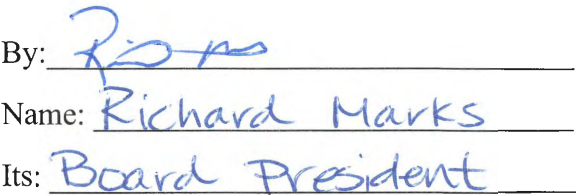 By:
Name: Richard Marks
Its: Board President